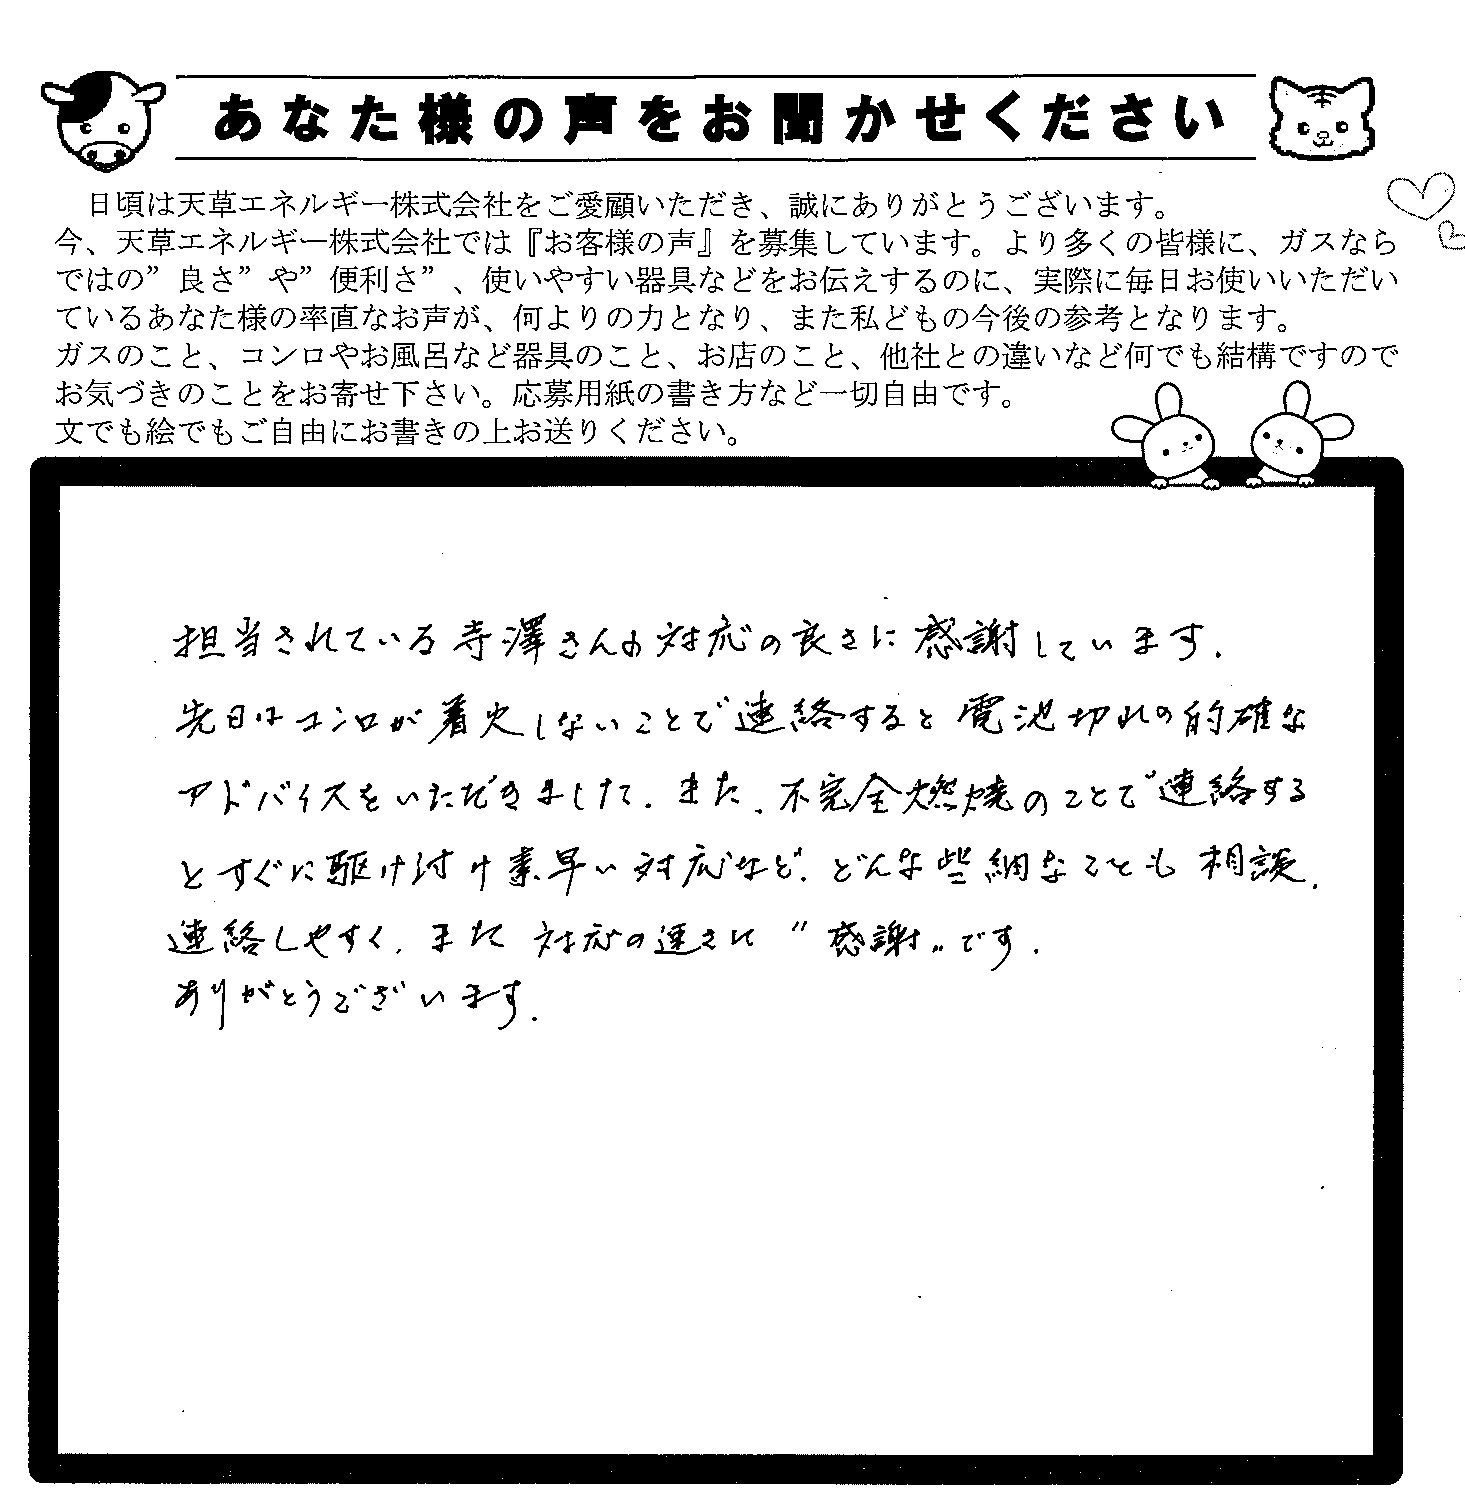 あなた様の声をお聞かせください
日頃は天草エネルギー株式会社をご愛顧いただき、誠にありがとうございます。
今、天草エネルギー株式会社では『お客様の声』を募集しています。より多くの皆様に、ガスなら
ではの”良さ”や”便利さ”、使いやすい器具などをお伝えするのに、実際に毎日お使いいただい
ているあなた様の率直なお声が、何よりの力となり、また私どもの今後の参考となります。
ガスのこと、コンロやお風呂など器具のこと、お店のこと、他社との違いなど何でも結構ですので
お気づきのことをお寄せ下さい。応募用紙の書き方など一切自由です。
文でも絵でもご自由にお書きの上お送りください。
担当されている寺澤さんの対応の良さに感謝しています.
先日はコンロが着火しないことで連絡すると電池切れの的確な
アドバイスをいただきまして. また、不完全燃焼のことで連絡する
とすぐに駆け付け素早い対応など、どんな些細なことも相談、
連絡しやすく、また対応の速さに〃感謝〃です.
ありがとうございます.